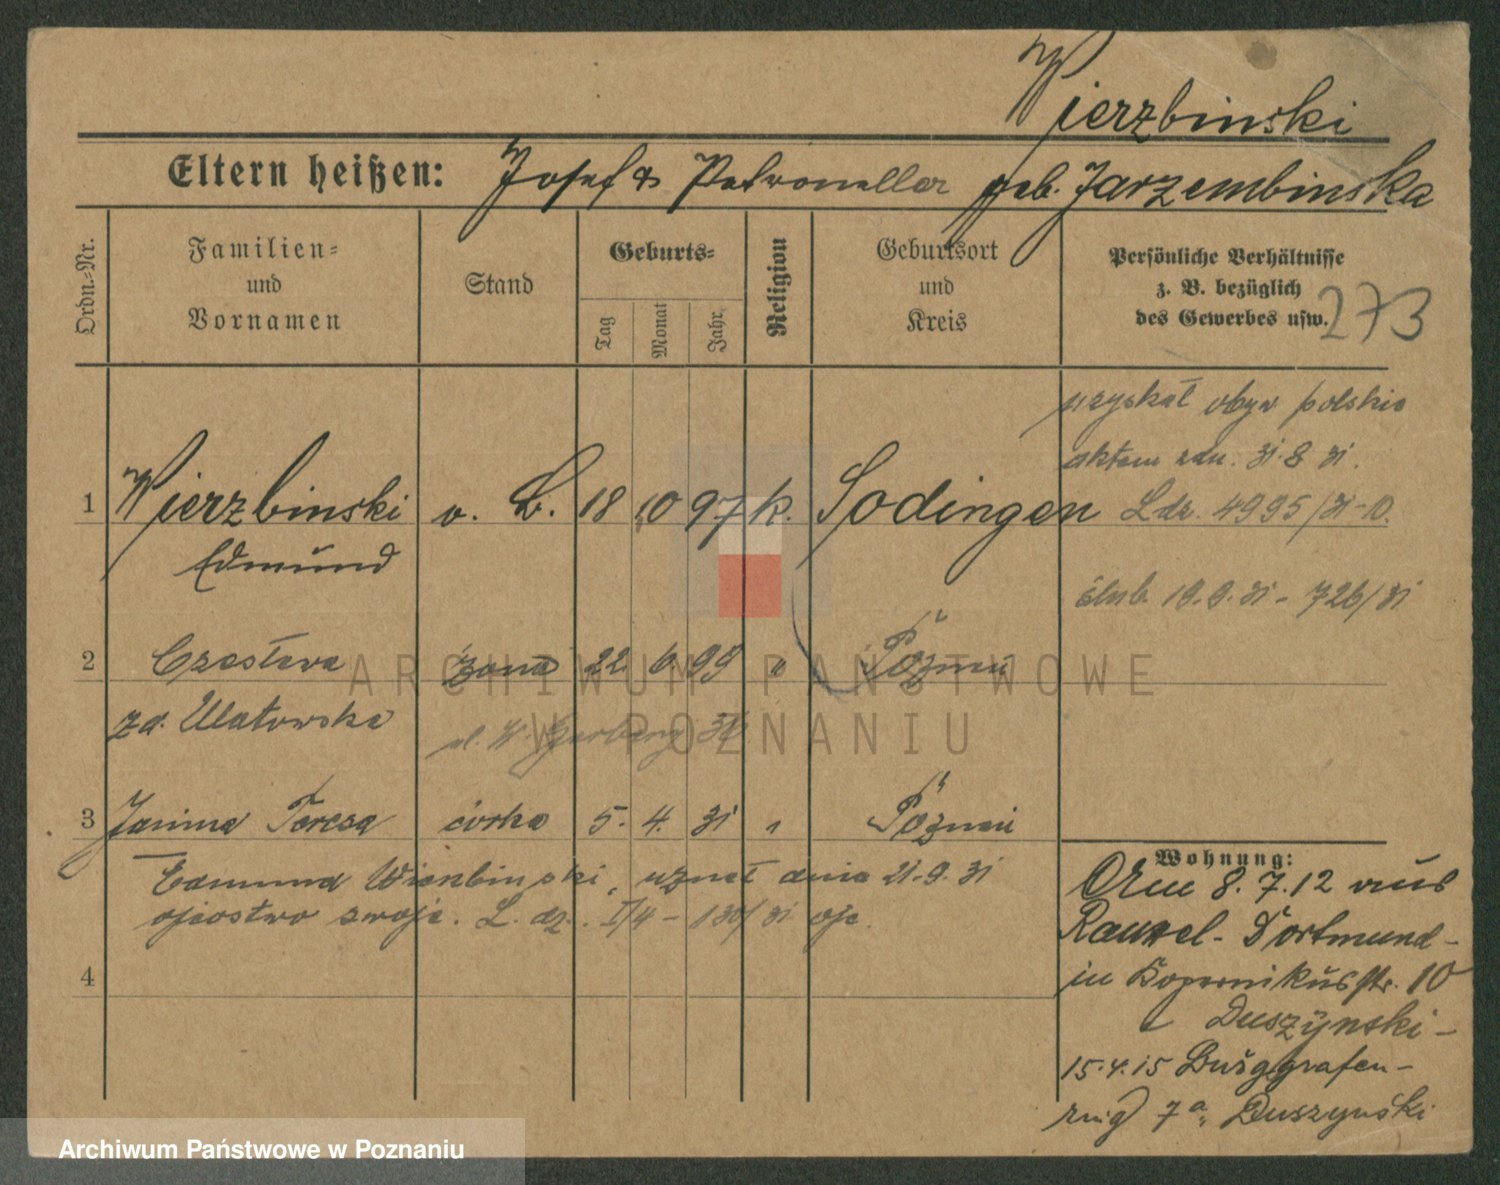 Wierzbinski
Eltern heißen: Josef & Petronella geb. Jarzembinska
Ordn.=Nr.
Familien=
und
Vornamen
Stand
Geburts=
Tag
Monat
Jahr
Religion
Geburtsort
und
Kreis
Persönliche Verhältnisse
z. B. bezüglich
des Gewerbes usw.
273
uzyskał obyw polskie
aktem 31.8 31.
1 Wierzbinski o. B. 18 10 97 k. Sodingen
L.dz. 4995/31-10.
Edmund
ślub 19.9.31 - 726/31
2 Czesława żona 22 6. 99 " Poznań
zd. Ulatowska
ul. 36
3 Janina Teresa córka 5. 4. 31 " Poznań
Edmund Wierzbinski, uznał dnia 21.9.31
ojcostwo swoje. L. dz. I/4 - 130/31 ojc.
4
Wohnung:
8.7.12 aus
Rauxel - Dortmund -
in Kopernikusstr. 10
Duszynski -
15.4.15 Burggrafen-
ring 7a Duszynski
ARCHIWUM PAŃSTWOWE
W POZNANIU
Archiwum Państwowe w Poznaniu